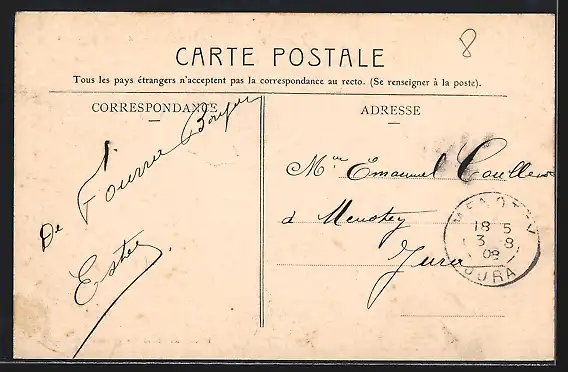 8
CARTE POSTALE
Tous les pays étrangers n'acceptent pas la correspondance au recto. (Se renseigner à la poste).
CORRESPONDANCE
ADRESSE
De Fourra Bonjour
Ester
Mme Emanuel
à Menotey
Jura
MENOTEY
18 5
3 8
08
JURA